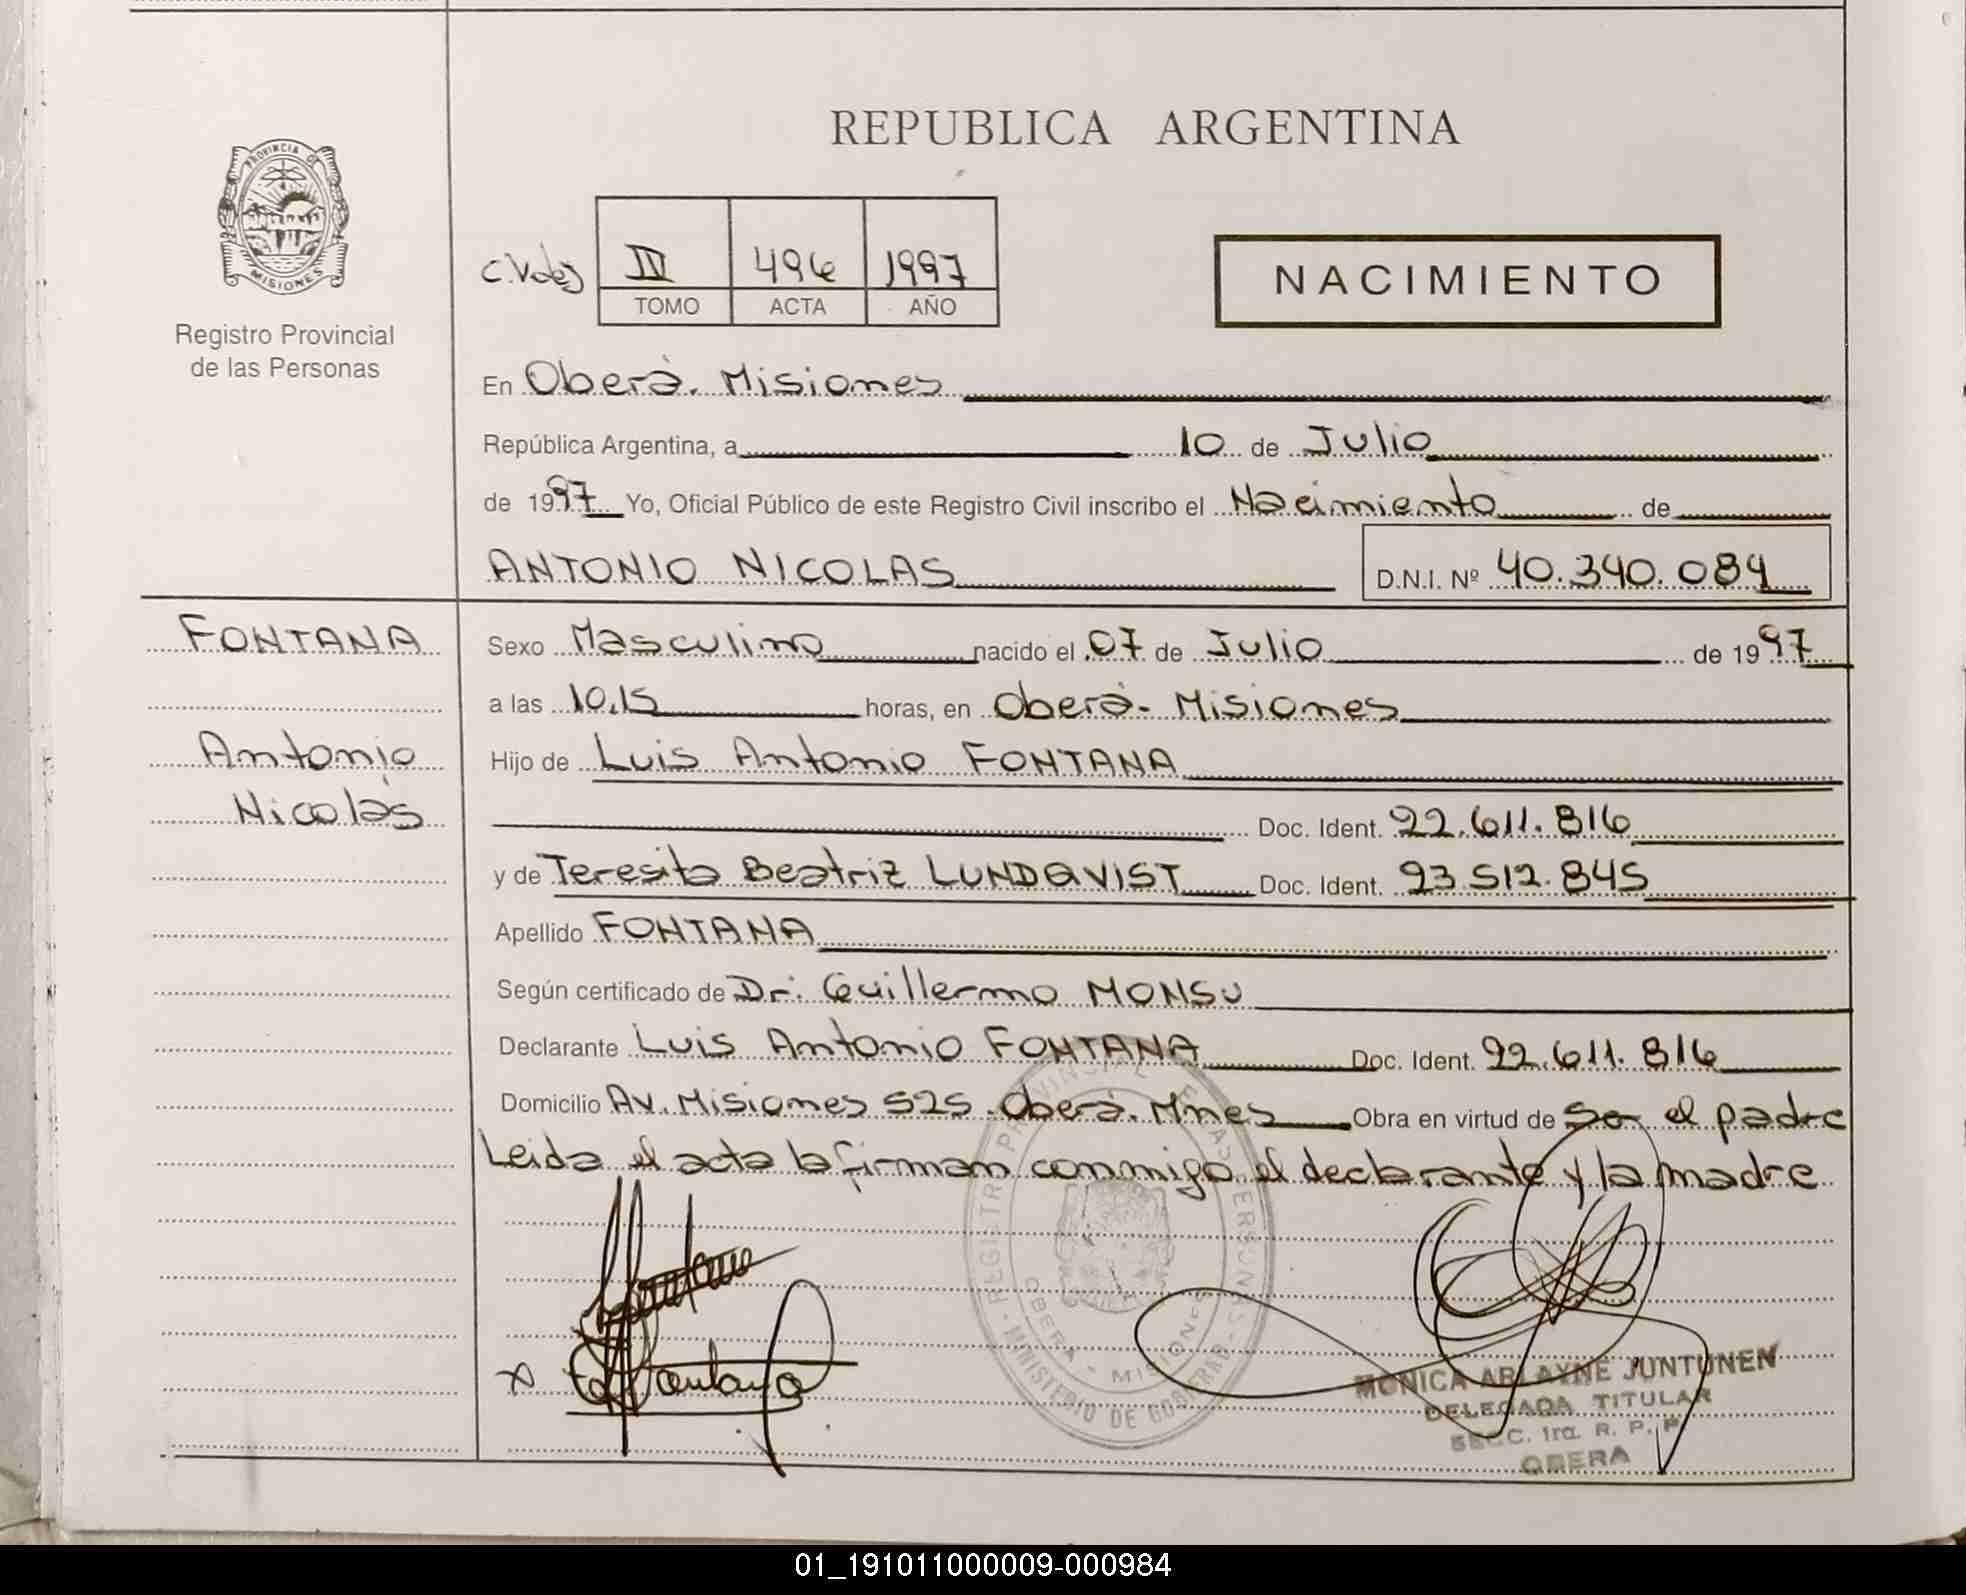 REPUBLICA ARGENTINA
PROVINCIA DE
MISIONES
Registro Provincial
de las Personas
IV 496 1997
TOMO ACTA AÑO
NACIMIENTO
En Oberà. Misiones
República Argentina, a 10 de Julio
de 1997 Yo, Oficial Público de este Registro Civil inscribo el Nacimiento de
ANTONIO NICOLAS D.N.I. Nº 40.340.084
FONTANA
Antonio
Nicolás
Sexo Masculino nacido el 07 de Julio de 1997
a las 10,15 horas, en Oberà- Misiones
Hijo de Luis Antonio FONTANA
Doc. Ident. 22.611.816
y de Teresita Beatriz LUNDQVIST Doc. Ident. 23.512.845
Apellido FONTANA
Según certificado de Dr. Guillermo MONSU
Declarante Luis Antonio FONTANA Doc. Ident. 22.611.816
Domicilio Av. Misiones 525. Oberà. Mnes Obra en virtud de ser el padre
Leida el acta la firman conmigo el declarante y la madre
REGISTRO PROVINCIAL DE LAS PERSONAS
MINISTERIO DE GOBIERNO
OBERA - MISIONES
MONICA ARLAYNE JUNTUNEN
DELEGADA TITULAR
SECC. 1ra. R. P. P.
OBERA
01_191011000009-000984